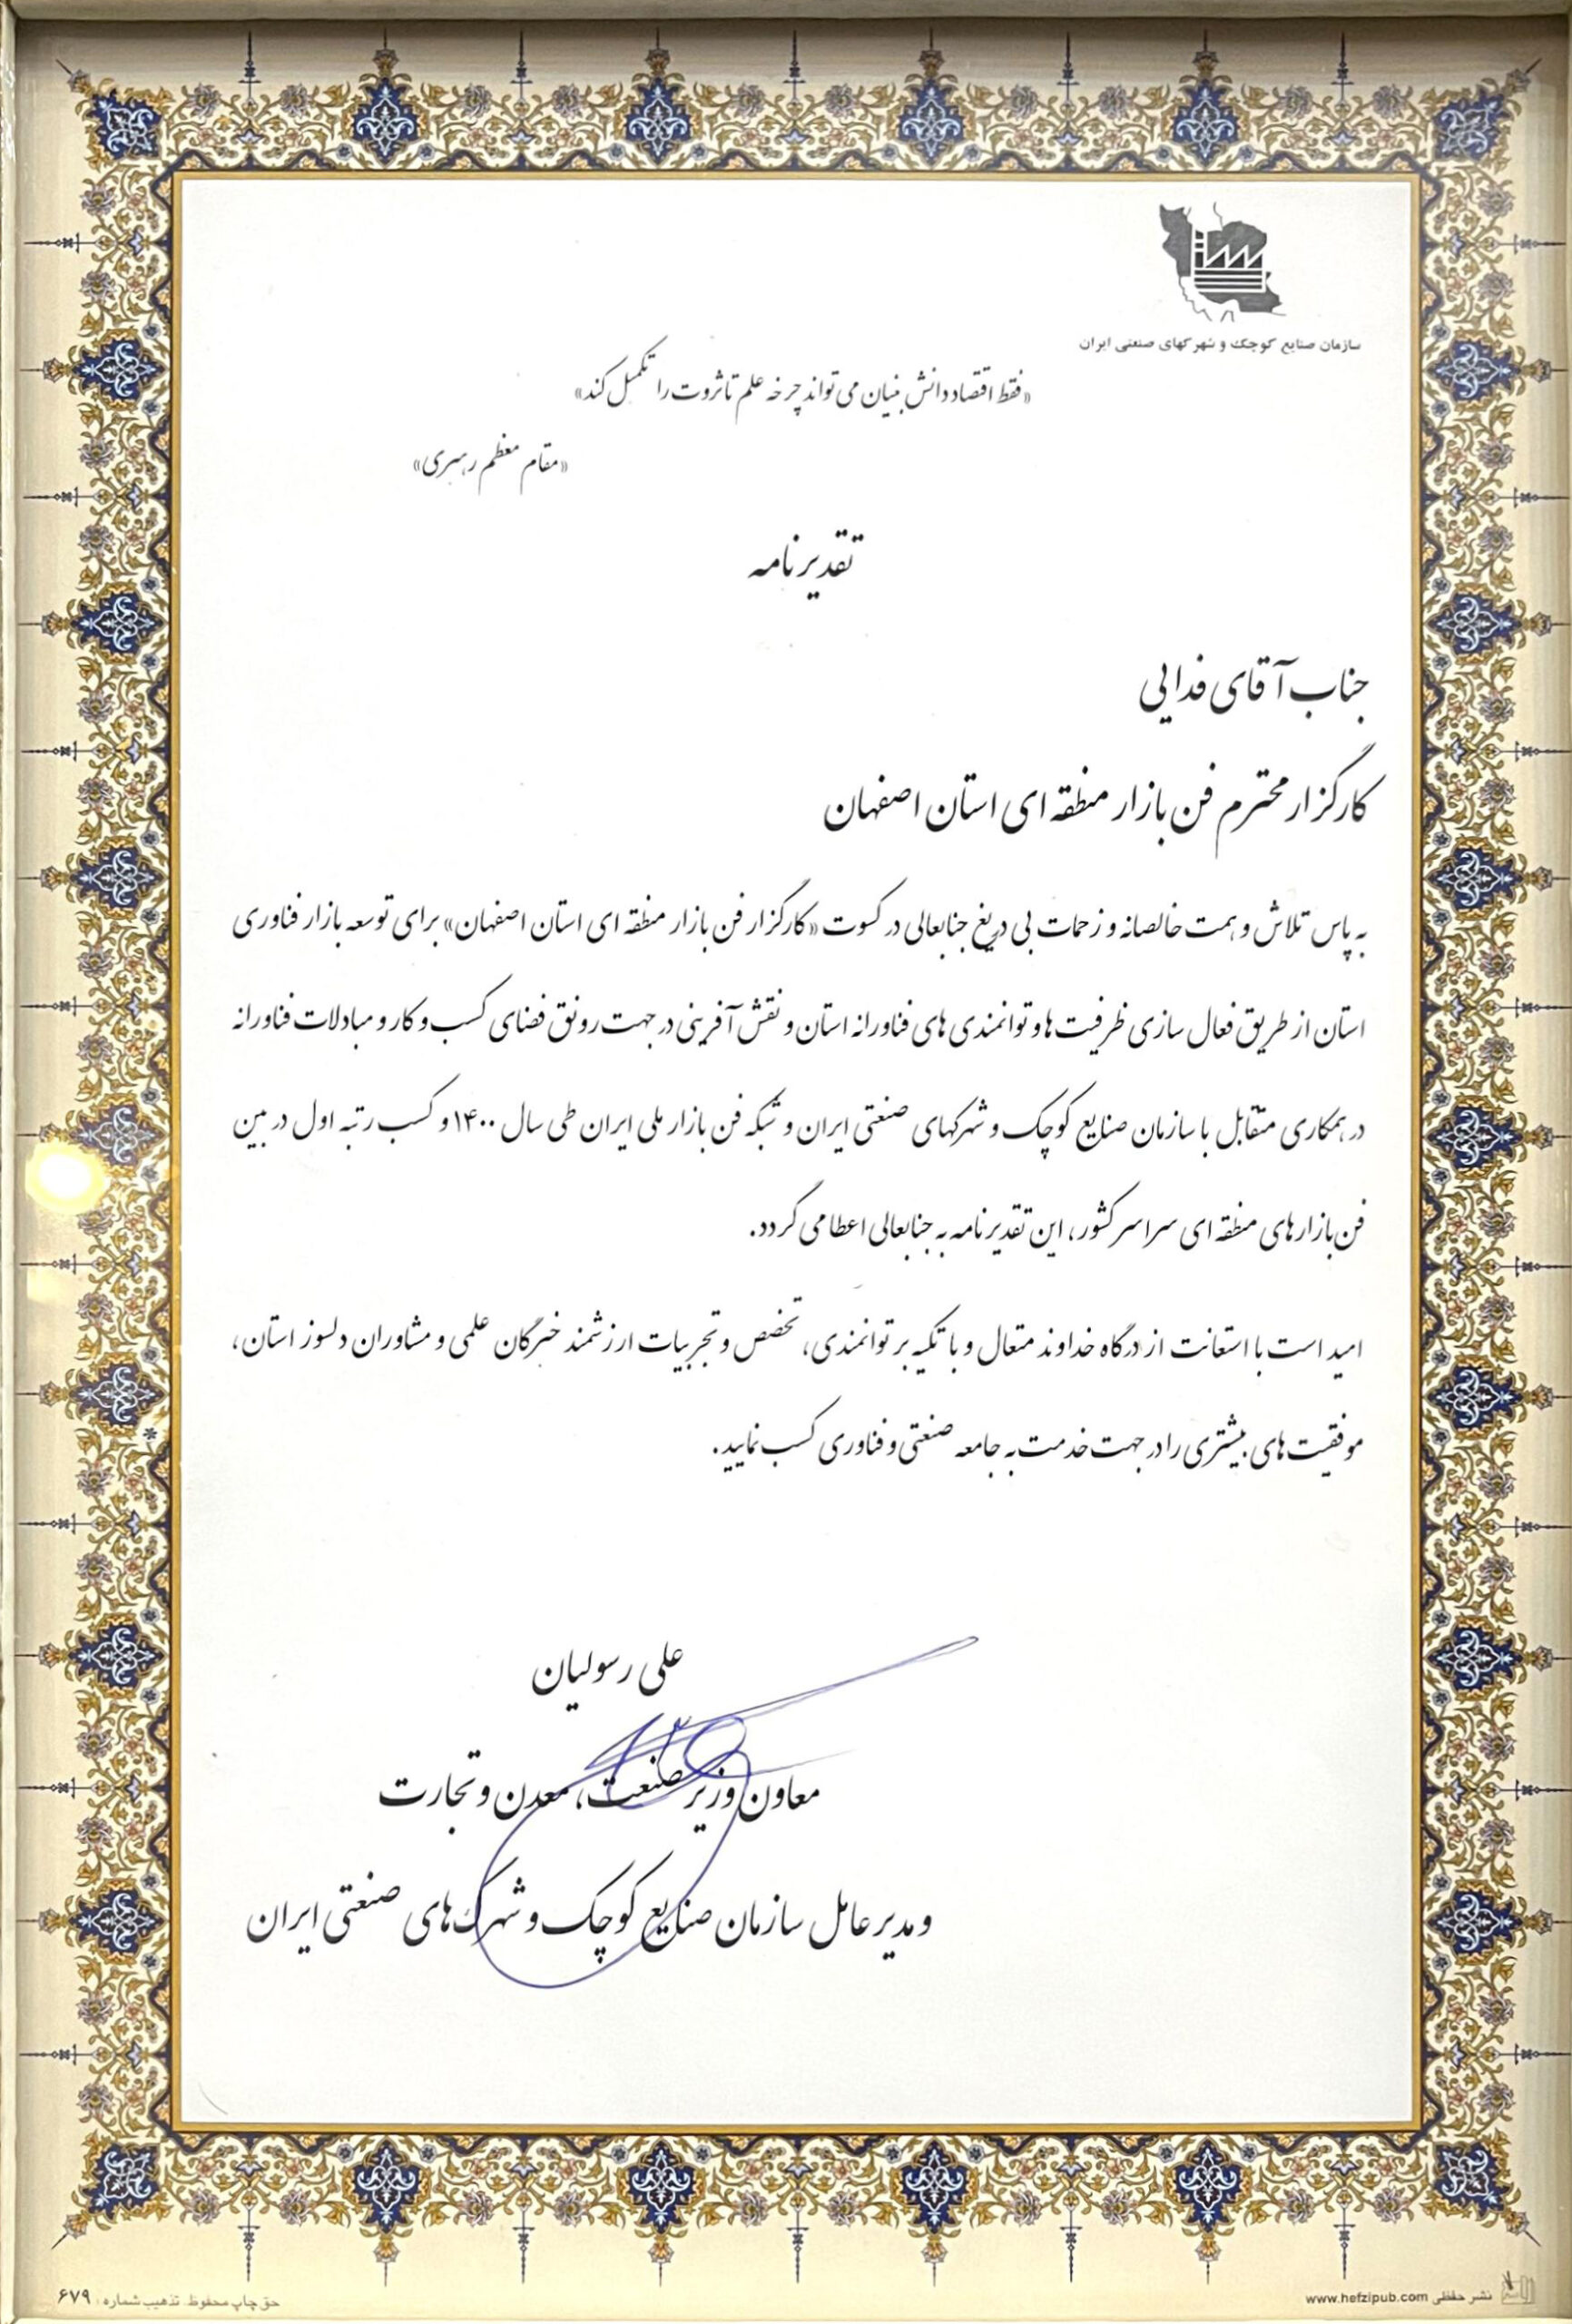 سازمان صنایع کوچک و شهرکهای صنعتی ایران
«فقط اقتصاد دانش بنیان می تواند چرخه علم تا ثروت را تکمیل کند»
«مقام معظم رهبری»
تقدیرنامه
جناب آقای فدایی
کارگزار محترم فن بازار منطقه ای استان اصفهان
به پاس تلاش و همت خالصانه و زحمات بی دریغ جنابعالی در کسوت «کارگزار فن بازار منطقه ای استان اصفهان» برای توسعه بازار فناوری
استان از طریق فعال سازی ظرفیت ها و توانمندی های فناورانه استان و نقش آفرینی در جهت رونق فضای کسب و کار و مبادلات فناورانه
در همکاری متقابل با سازمان صنایع کوچک و شهرکهای صنعتی ایران و شبکه فن بازار ملی ایران طی سال ۱۴۰۰ و کسب رتبه اول در بین
فن بازارهای منطقه ای سراسر کشور، این تقدیرنامه به جنابعالی اعطا می گردد.
امید است با استعانت از درگاه خداوند متعال و با تکیه بر توانمندی، تخصص و تجربیات ارزشمند خبرگان علمی و مشاوران دلسوز استان،
موفقیت های بیشتری را در جهت خدمت به جامعه صنعتی و فناوری کسب نمایید.
علی رسولیان
معاون وزیر صنعت، معدن و تجارت
و مدیر عامل سازمان صنایع کوچک و شهرک های صنعتی ایران
نشر حفظی www.hefzipub.com
حق چاپ محفوظ. تذهیب شماره: ۶۷۹